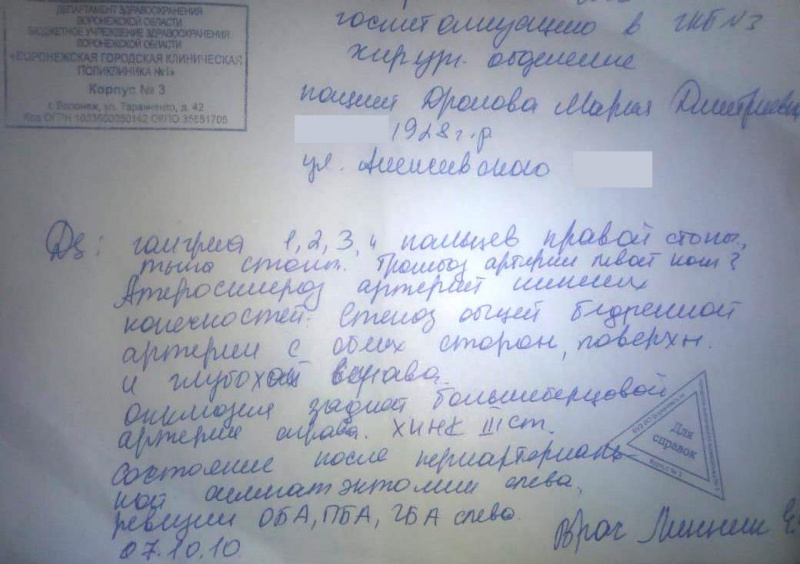 ДЕПАРТАМЕНТ ЗДРАВООХРАНЕНИЯ
ВОРОНЕЖСКОЙ ОБЛАСТИ
БЮДЖЕТНОЕ УЧРЕЖДЕНИЕ ЗДРАВООХРАНЕНИЯ
ВОРОНЕЖСКОЙ ОБЛАСТИ
«ВОРОНЕЖСКАЯ ГОРОДСКАЯ КЛИНИЧЕСКАЯ
ПОЛИКЛИНИКА №1»
Корпус № 3
г. Воронеж, ул. Тараненко, д. 42
Код ОГРН ОКПО
госпитализацию в ГКБ №3
хирург. отделение
пациент Дронова Мария Дмитриевна
1928 г.р
ул.
Ds: гангрена 1, 2, 3, 4 пальцев правой стопы,
тыла стопы. Тромбоз артерии правой ноги?
Атеросклероз артерий нижних
конечностей. Стеноз общей бедренной
артерии с обеих сторон, поверхн.
и глубокой справа.
окклюзия задней большеберцовой
артерии справа. ХИНК III ст.
состояние после периартериаль-
ной симпатэктомии слева,
ревизии ОБА, ПБА, ГБА слева.
07.10.10
Врач
Для
справок